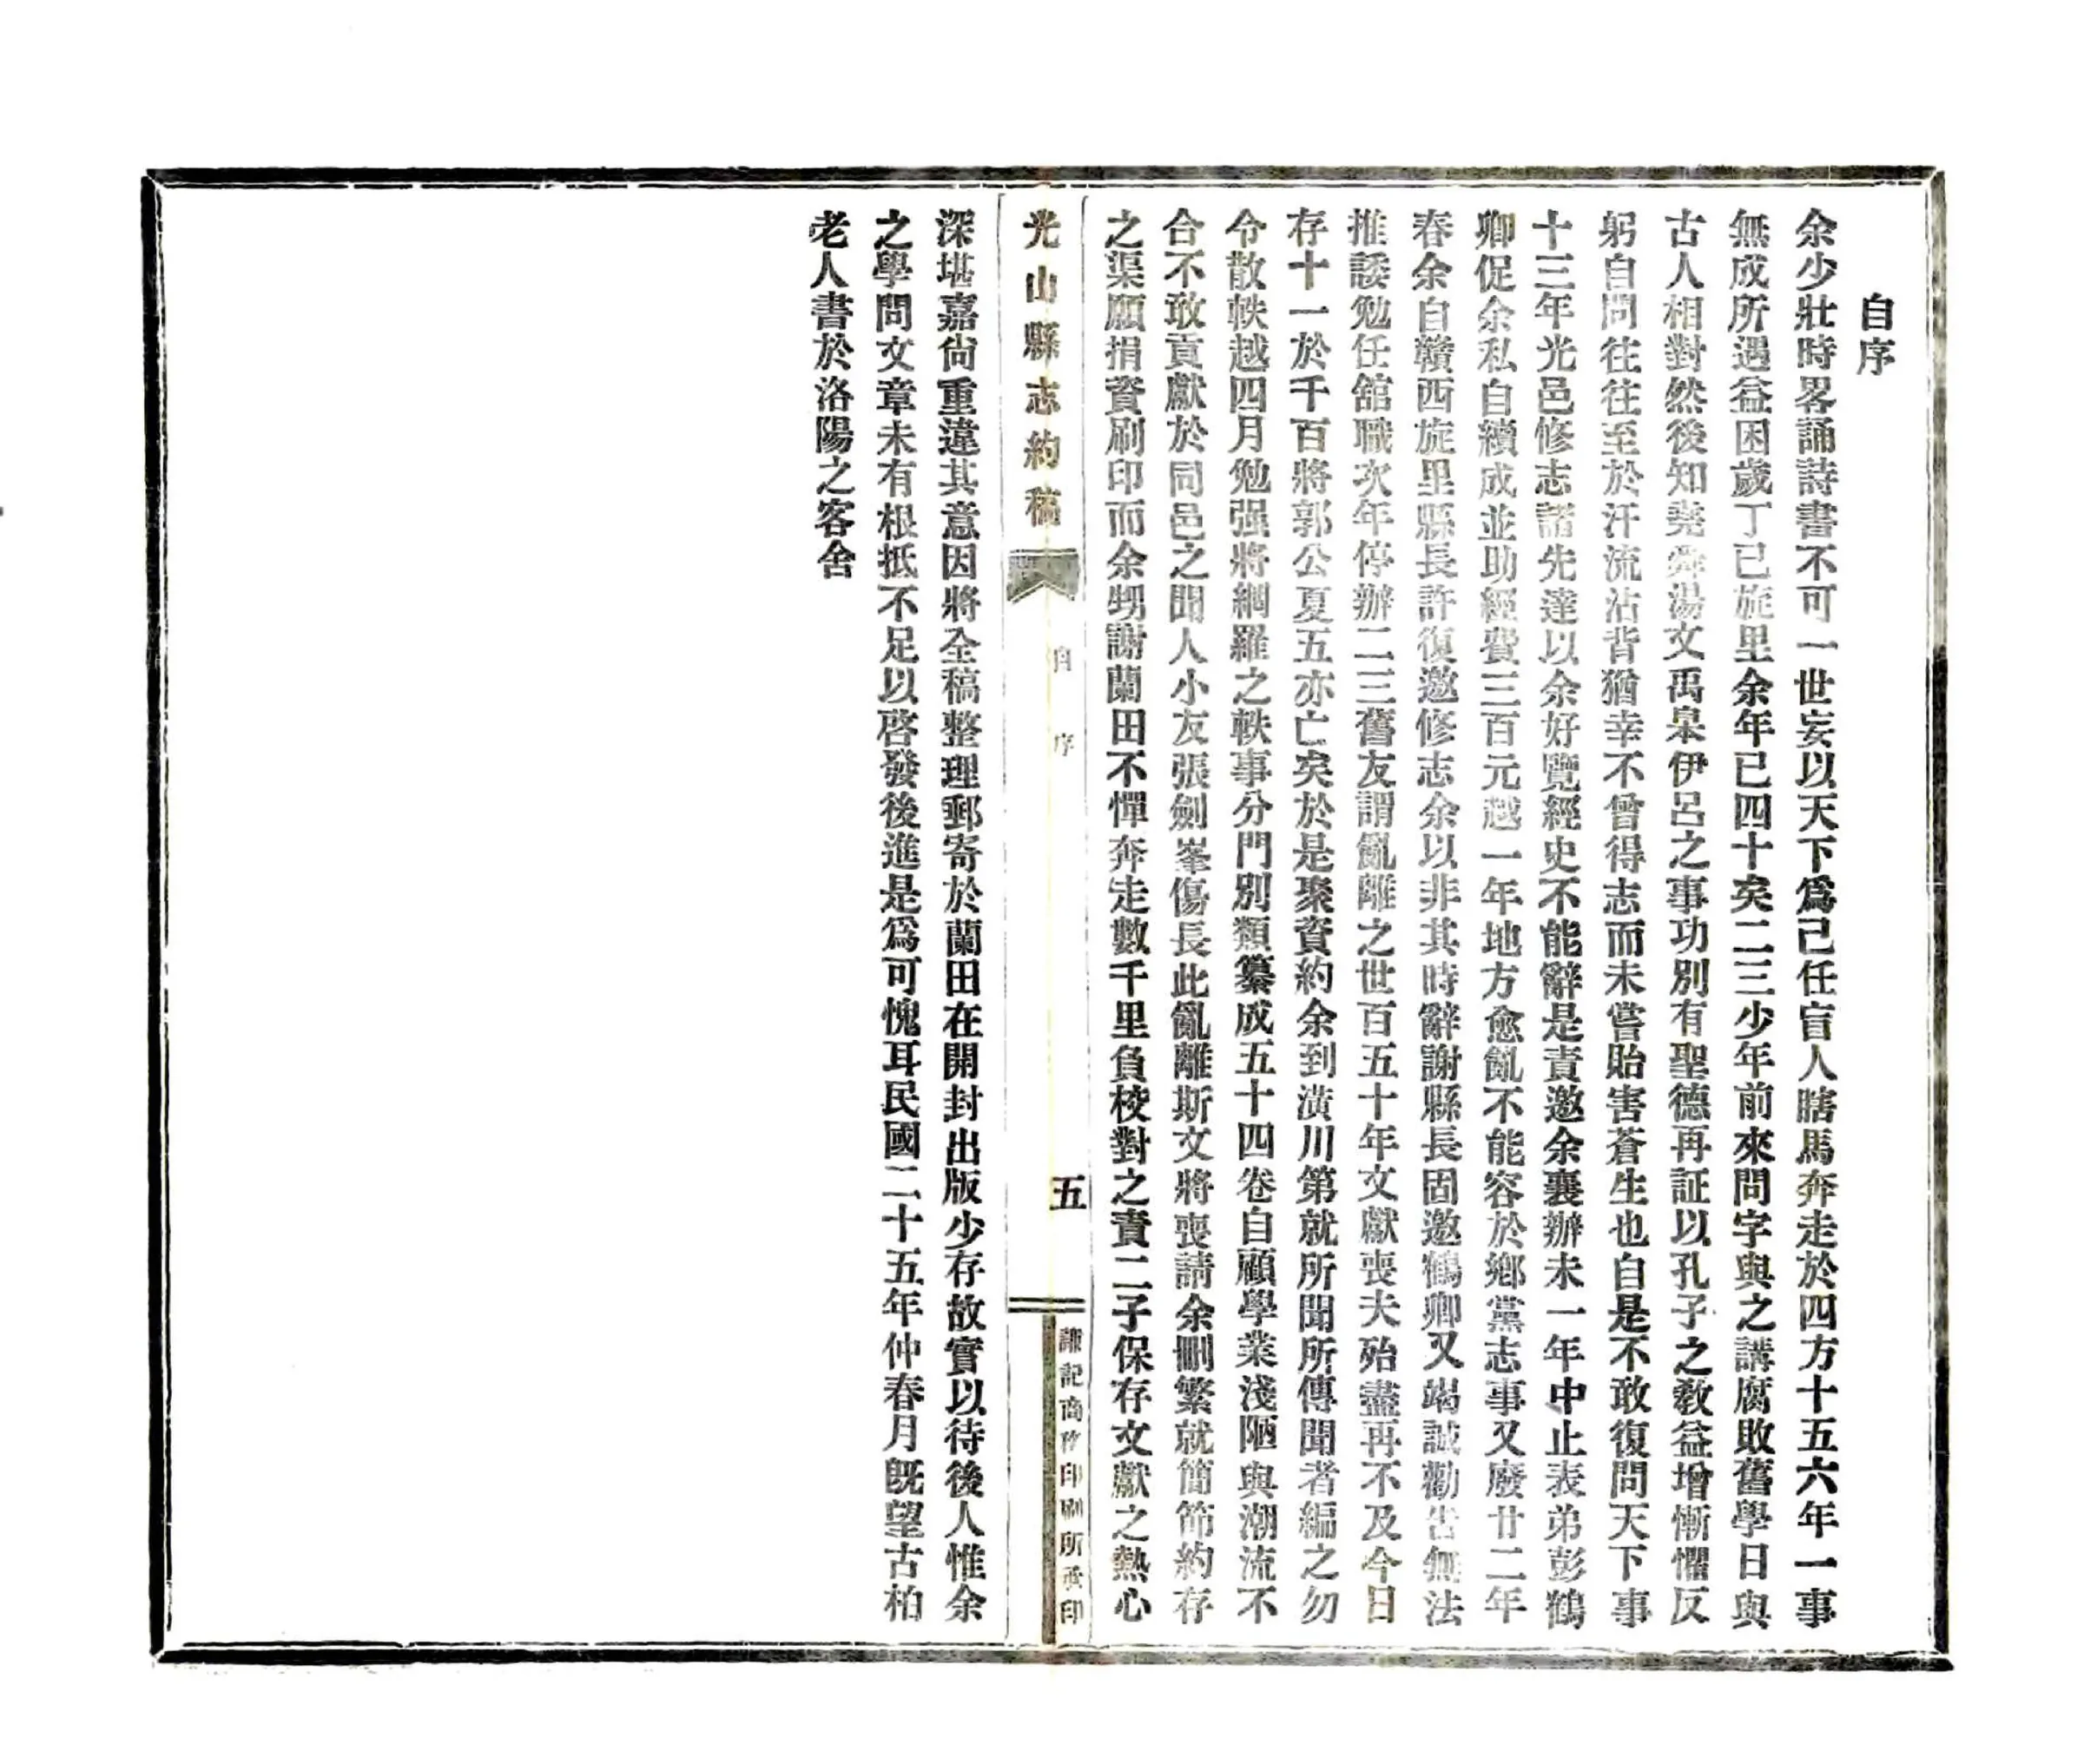 自序
余少壯時畧誦詩書不可一世妄以天下爲己任盲人瞎馬奔走於四方十五六年一事
無成所遇益困歲丁巳旋里余年已四十矣二三少年前來問字與之講腐敗舊學日與
古人相對然後知堯舜湯文禹皐伊呂之事功別有聖德再証以孔子之敎益增慚懼反
躬自問往往至於汗流沾背猶幸不曾得志而未嘗貽害蒼生也自是不敢復問天下事
十三年光邑修志諸先達以余好覽經史不能辭是責邀余襄辦未一年中止表弟彭鶴
卿促余私自續成並助經費三百元越一年地方愈亂不能容於鄉黨志事又廢廿二年
春余自贛西旋里縣長許復邀修志余以非其時辭謝縣長固邀鶴卿又竭誠勸告無法
推諉勉任舘職次年停辦二三舊友謂亂離之世百五十年文獻喪失殆盡再不及今日
存十一於千百將郭公夏五亦亡矣於是聚資約余到潢川第就所聞所傳聞者編之勿
令散軼越四月勉强將網羅之軼事分門別類纂成五十四卷自顧學業淺陋與潮流不
合不敢貢獻於同邑之聞人小友張劍峯傷長此亂離斯文將喪請余刪繁就簡節約存
之渠願捐資刷印而余甥謝蘭田不憚奔走數千里負校對之責二子保存文獻之熱心
光山縣志約稿
自序
五
謙記商務印刷所承印
深堪嘉尙重違其意因將全稿整理郵寄於蘭田在開封出版少存故實以待後人惟余
之學問文章未有根抵不足以啓發後進是爲可愧耳民國二十五年仲春月旣望古柏
老人書於洛陽之客舍